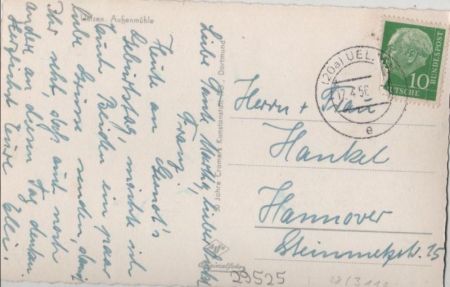 Uelzen. Außenmühle
Liebe Tante Martha, lieber Onkel
Franz.
Heute an Gernot's
Geburtstag, möchte ich
Euch Beiden ein paar
liebe Grüße senden, damit
Ihr seht daß auch noch
andre an diesen Tag denken.
Herzlichst Eure Elli.
Jahre Cramers Kunstanstalt Dortmund
(20a) UELZEN
17.4.56
e
10
DEUTSCHE
BUNDESPOST
Herrn + Frau
Hankel
Hannover
Steinmetzstr. 15
29525